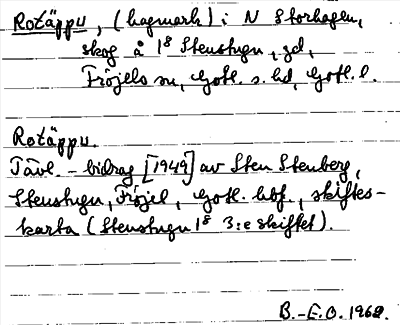 Rotäppu, (hagmark) i N Storhagen,
skog å 1⁸ Stenstugu, gd,
Fröjels sn, Gotl. s. hd, Gotl. l.
Rotäppu.
Tävl.-bidrag [1949] av Sten Stenberg,
Stenstugu, Fröjel, Gotl. hbf., skiftes-
karta (Stenstugu 1⁸ 3:e skiftet).
B.-E.O. 1968.